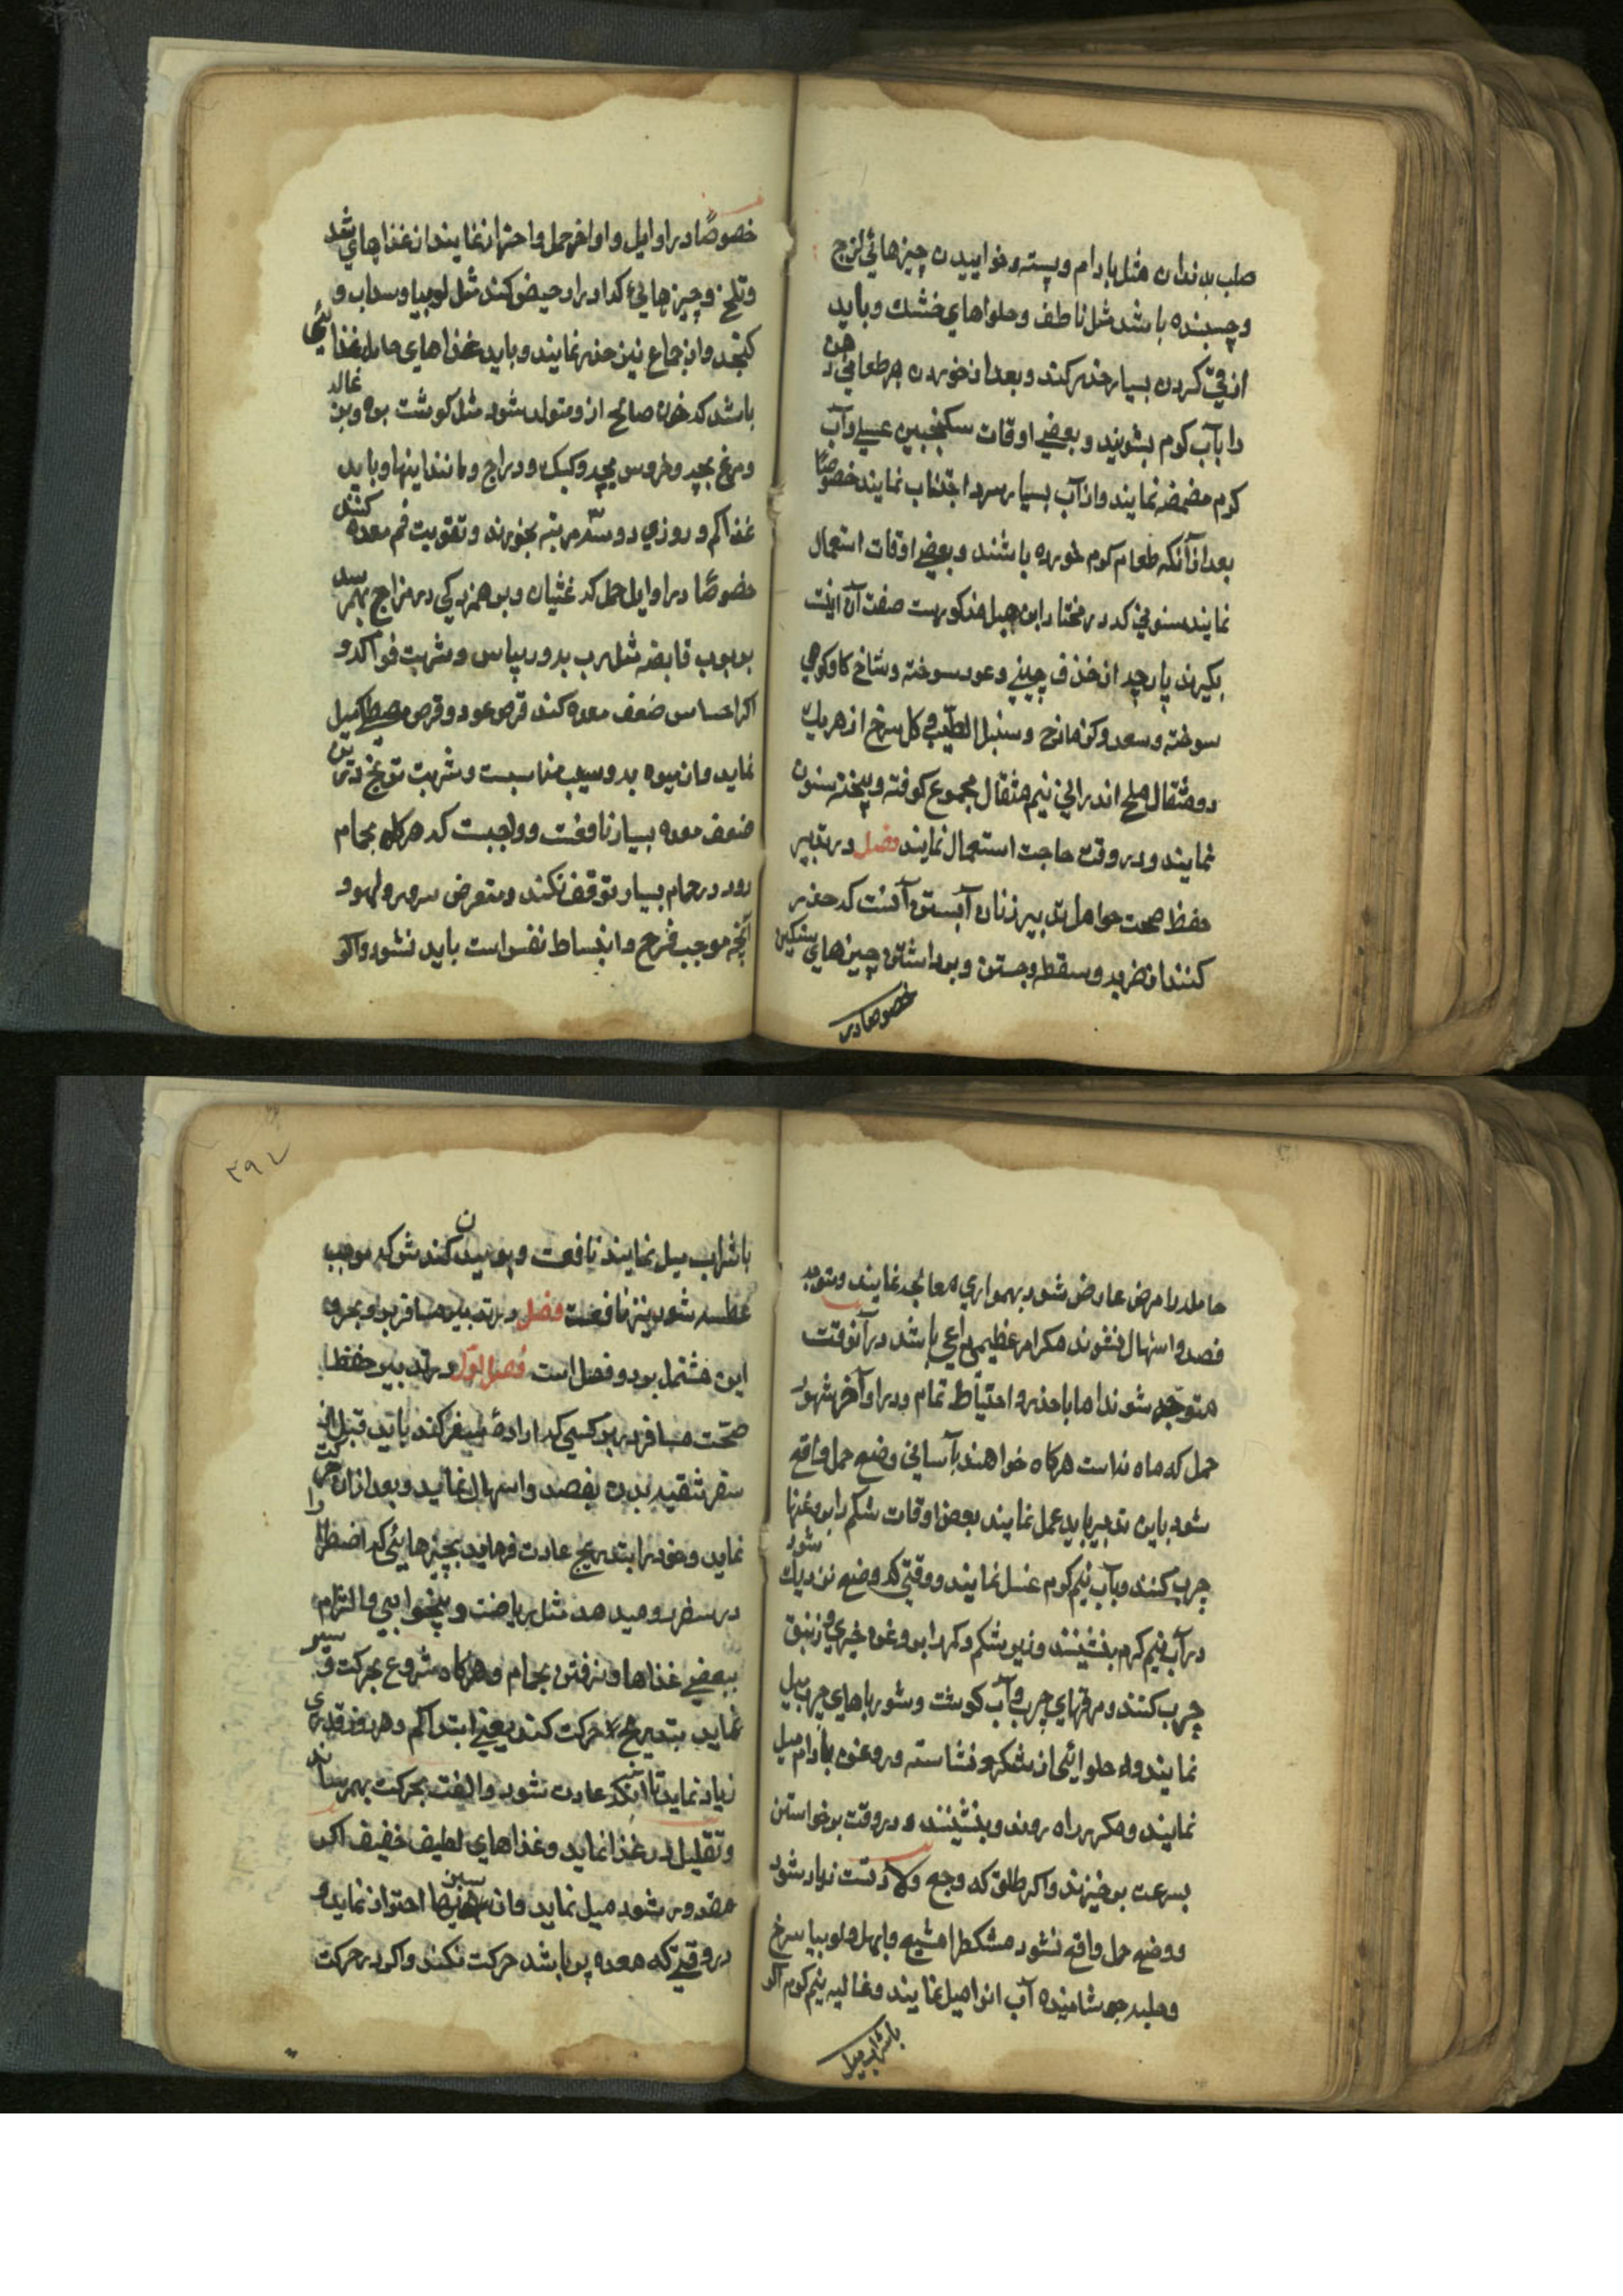 صلب بدندان مثل بادام و پسته و خواییدن چیزهائی لزج
و چسبنده باشد مثل ناطف و حلواهای خشك و باید
از قی کردن بسیار حذر کند و بعد از خوردن هر طعامی دهن
را بآب کرم بشویند و بعضی اوقات سکنجبین عسلی و آب
کرم مضمضه نمایند و از آب بسیار سرد اجتناب نمایند خصوصًا
بعد از آنکه طعام کرم خورده باشند و بعضی اوقات استعمال
نمایند سنونی که در مختار ابن هبل مذکورست صفت آن اینست
بکیرند پارچه از خذف چینی و عود سوخته و شاخ کاو کوهی
سوخته و سعد و کزمازج و سنبل الطیب و کل سرخ از هر یك
دو مثقال ملح اندرانی نیم مثقال مجموع کوفته و بیخته سنون
نمایند و در وقت حاجت استعمال نمایند فصل در تدبیر
حفظ صحت حوامل تدبیر زنان آبستن آنست که حذر
کنند از ضربه و سقطه و جستن و برداشتن چیزهای سنکین
خصوصا در
خصوصًا در اوایل و اواخر حمل و احتراز نمایند از غذاهای تند
و تلخ و چیزهائی که ادرار حیض کند مثل لوبیا و سداب و
کنجد و از جماع نیز حذر نمایند و باید غذاهای حامل غذائی
باشد که خون صالح ازو متولد شود مثل کوشت بره و بزغاله
و مرغ بچه و خروس بچه و کبك و دراج و مانند اینها و باید
غذا کم و روزی دو سه مرتبه بخورند و تقویت فم معده کنند
خصوصًا در اوایل حمل که غثیان و برهمزدکی در مزاج بهمرسد
بربوب قابضه مثل رب به و ریباس و شربت فواکه و
اکر احساس ضعف معده کند قرص عود و قرص مصطکی میل
نماید و از میوه به و سیب مناسبست و شربت تورنج درین
ضعف معده بسیار نافعست و واجبست که هرکاه بحمام
رود در حمام بسیار توقف نکند و متعرض سرور و لهو و
آنچه موجب فرح و انبساط نفس است باید نشود و اکر
حامله را مرض عارض شود بهمواری معالجه نمایند و متوجه
فصد و اسهال نشوند مکر امر عظیمی داعی باشد در آنوقت
متوجه شوند اما با حذر و احتیاط تمام و در اواخر شهور
حمل که ماه نه است هرکاه خواهند بآسانی وضع حمل واقع
شود باین تدبیر باید عمل نمایند بعض اوقات شکم را بروغنها
چرب کنند و بآب نیم کرم غسل نمایند و وقتی که وضع نزدیك شود
در آب نیم کرم بنشینند و زیر شکم و کمر را بروغن خیری و زنبق
چرب کنند و مرقهای چرب و آب کوشت و شورباهای چرب میل
نمایند و حلوائی از شکر و نشاسته و روغن بادام میل
نمایند و مکرر راه روند و بنشینند و در وقت برخواستن
بسرعت برخیزند و اکر طلق که وجع ولادتست زیاد شود
و وضع حمل واقع نشود مشکطرامشیع و ابهل و لوبیا سرخ
و حلبه جوشانیده آب انرا میل نمایند و غالیه نیم کرم اکر
باشراب میل
۲۹۷
باشراب میل نمایند نافعست و بوییدن کندش که موجب
عطسه شود نیز نافعست فصل در تدبیر مسافرین و بحر و
این مشتمل بر دو فصل است فصل اول در تدبیر حفظ
صحت مسافر در بر کسی که اراده سفر کند باید قبل از
سفر تنقیه بدن بفصد و اسهال نماید و بعد ازان حرکت
نماید و خود را بتدریج عادت فرماید بچیزهایئی که اضطرار
در سفر رو میدهد مثل ریاضت و بیخوابی و التزام
ببعضی غذاها و نرفتن بحمام و هرکاه شروع بحرکت و سیر
نماید بتدریج حرکت کند یعنی ابتدا کم و هر روز قدری
زیاد نماید تا آنکه عادت شود و الفت بحرکت بهمرساند
و تقلیل در غذا نماید و غذاهای لطیف خفیف اکر
مقدور شود میل نماید و از سبزیها احتراز نماید و
در وقتی که معده پر باشد حرکت نکند و اکر در حرکت